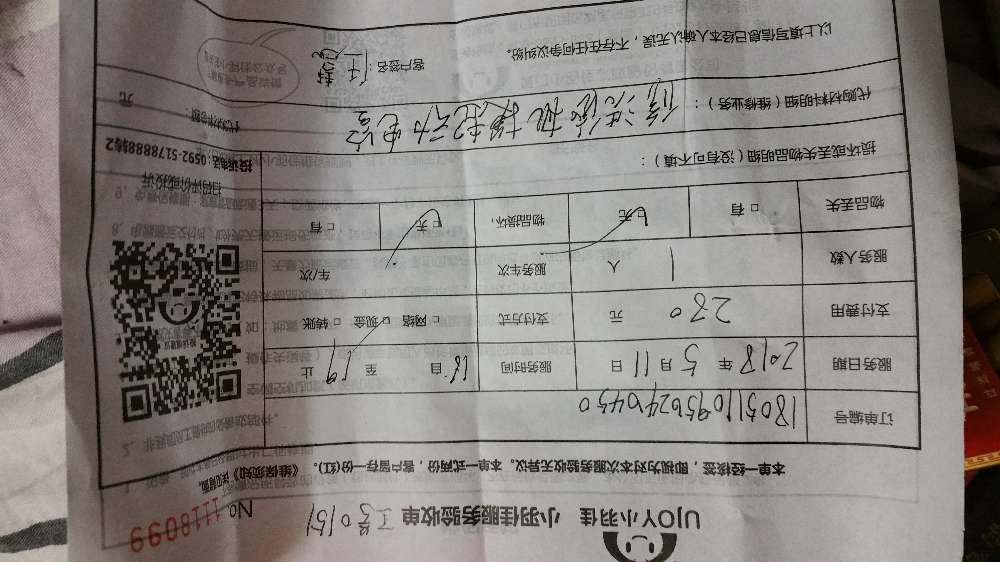 UJOY小羽佳 小羽佳服务验收单 工号0151
No 1118099
本单一经核签，即视为对本次服务验收无异议。本单一式两份，客户留存一份(红)。《维保须知》详见背面。
订单编号 1805110956240450
服务日期 2018年5月11日 服务时间 18自 至19止
支付费用 280 元 支付方式 □网络 □现金 □转账
服务人数 1 人 服务车次 车/次
物品丢失 □有 □无 物品损坏 □无 □有
损坏或丢失物品明细（没有可不填）：
代购材料明细（维修业务）：
修洗衣机换起动电容
代购金额： 元
以上填写信息已经本人确认无误，不存在任何争议纠纷。
客户签名：
扫码评价或投诉
投诉电话：0592-5178888转2